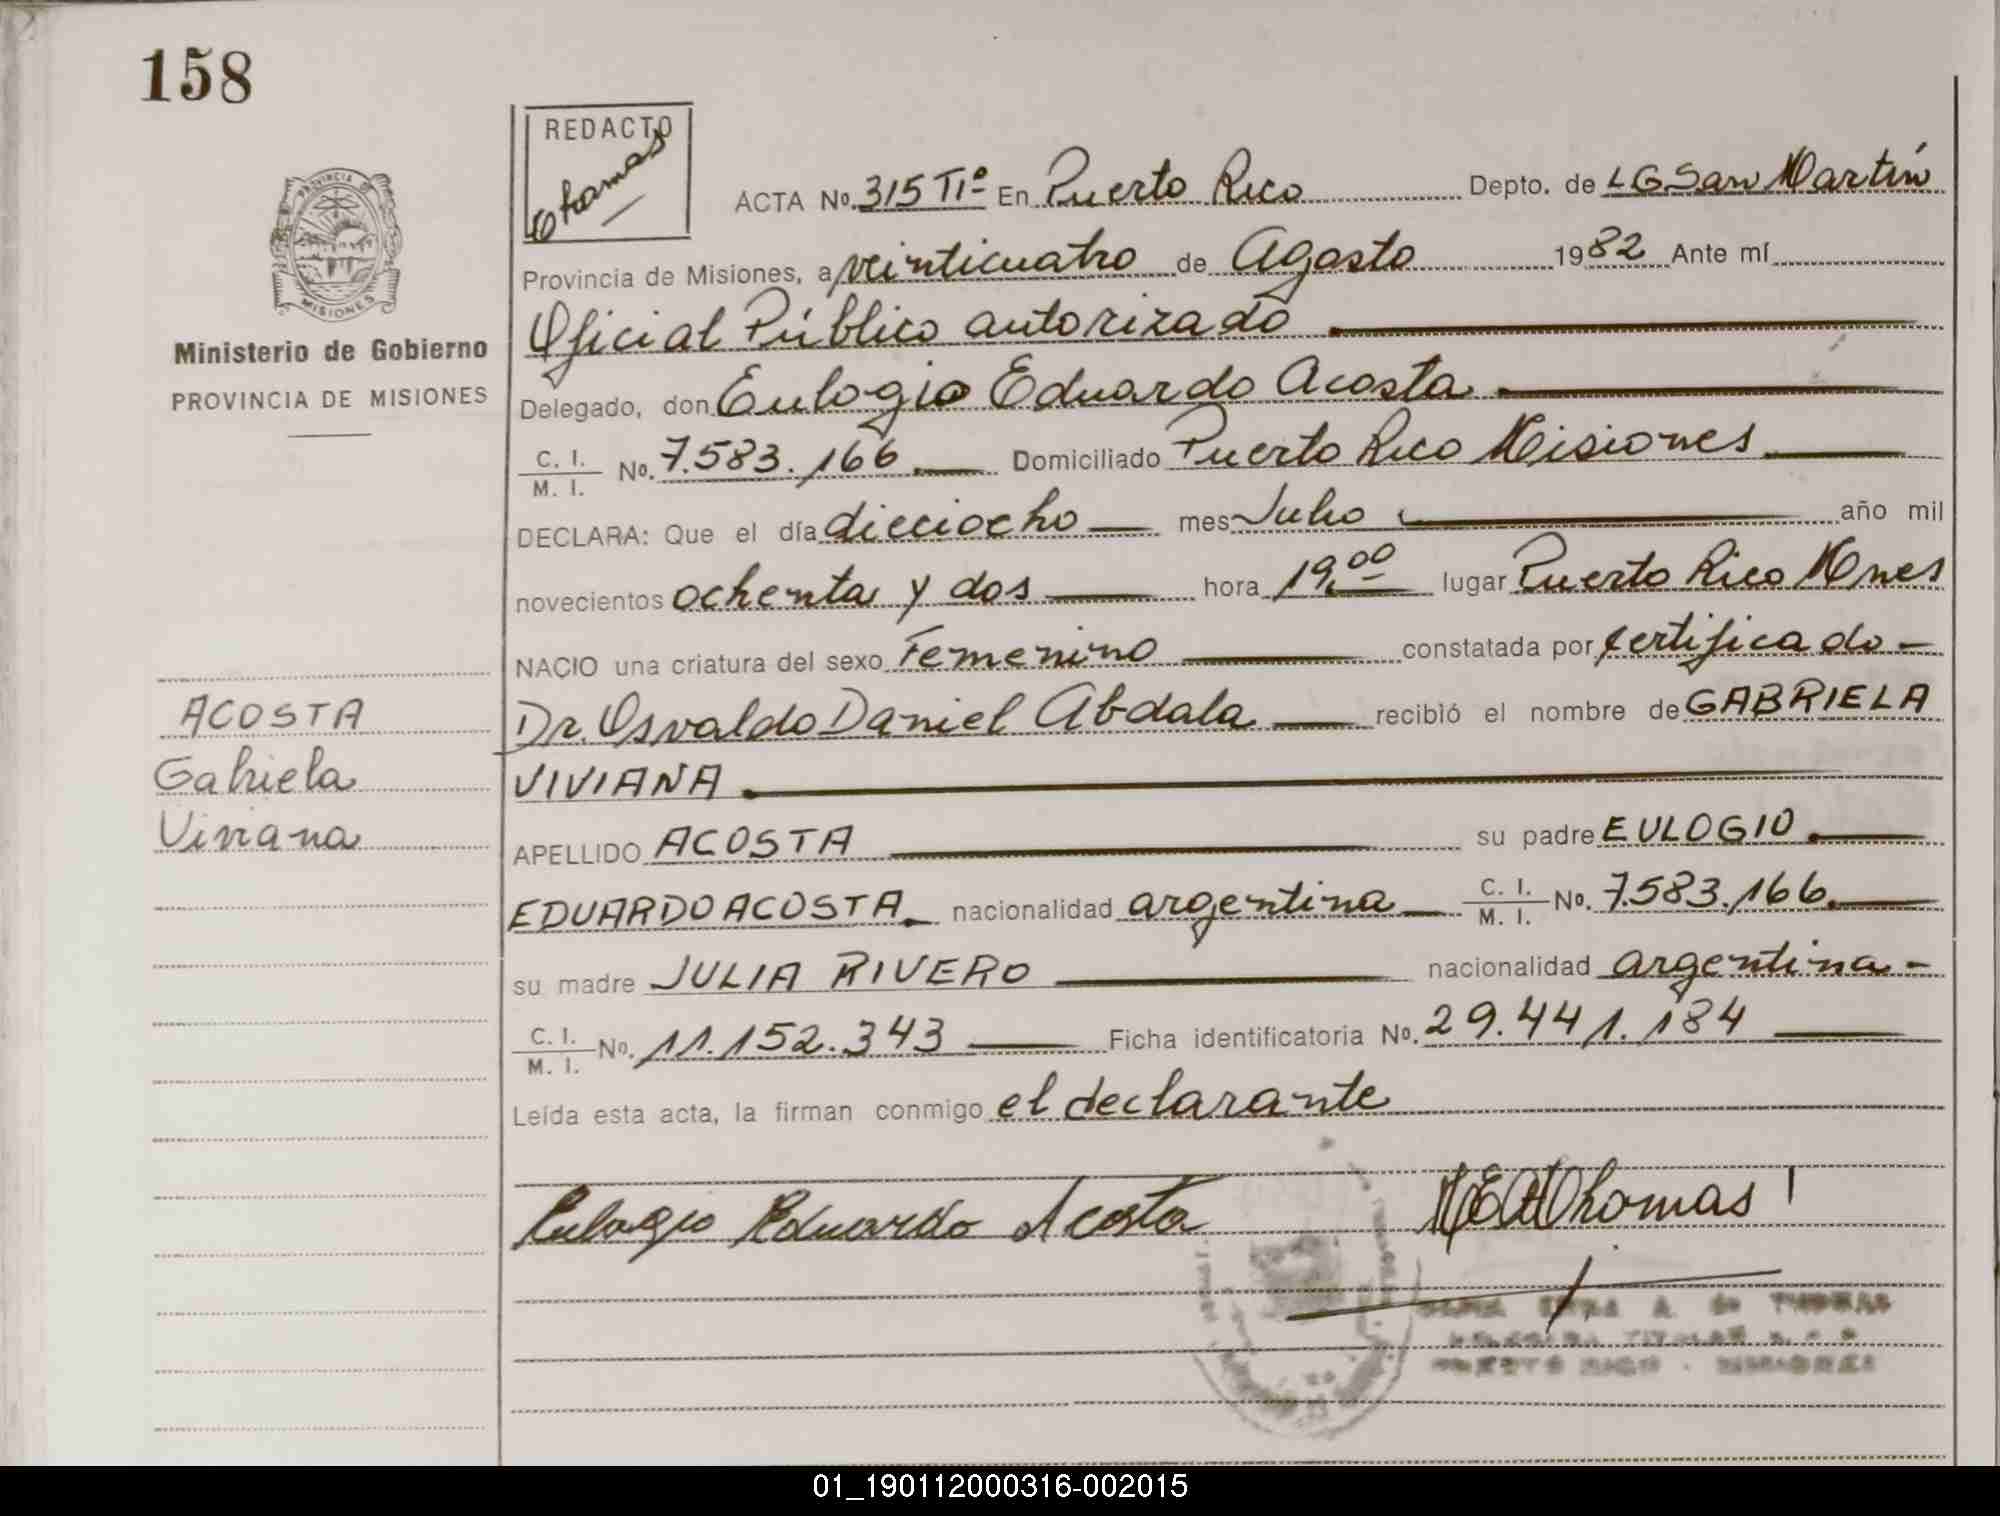 158
REDACTO
Thomas
PROVINCIA DE
MISIONES
Ministerio de Gobierno
PROVINCIA DE MISIONES
ACTA No. 315 Tiº En Puerto Rico Depto. de L G San Martín
Provincia de Misiones, a veinticuatro de Agosto 1982 Ante mí
Oficial Público autorizado
Delegado, don Eulogio Eduardo Acosta
C. I. / M. I. No. 7.583.166 Domiciliado Puerto Rico Misiones
DECLARA: Que el día dieciocho mes Julio año mil
novecientos ochenta y dos hora 19,00 lugar Puerto Rico Mnes
NACIO una criatura del sexo Femenino constatada por certificado -
Dr. Osvaldo Daniel Abdala recibió el nombre de GABRIELA
VIVIANA
APELLIDO ACOSTA su padre EULOGIO
EDUARDO ACOSTA nacionalidad argentina C. I. / M. I. No. 7.583.166
su madre JULIA RIVERO nacionalidad argentina -
C. I. / M. I. No. 11.152.343 Ficha identificatoria No. 29.441.184
Leída esta acta, la firman conmigo el declarante
ACOSTA
Gabriela
Viviana
Eulogio Eduardo Acosta
Thomas
A. de THOMAS
TITULAR
PUERTO RICO - MISIONES
01_190112000316-002015